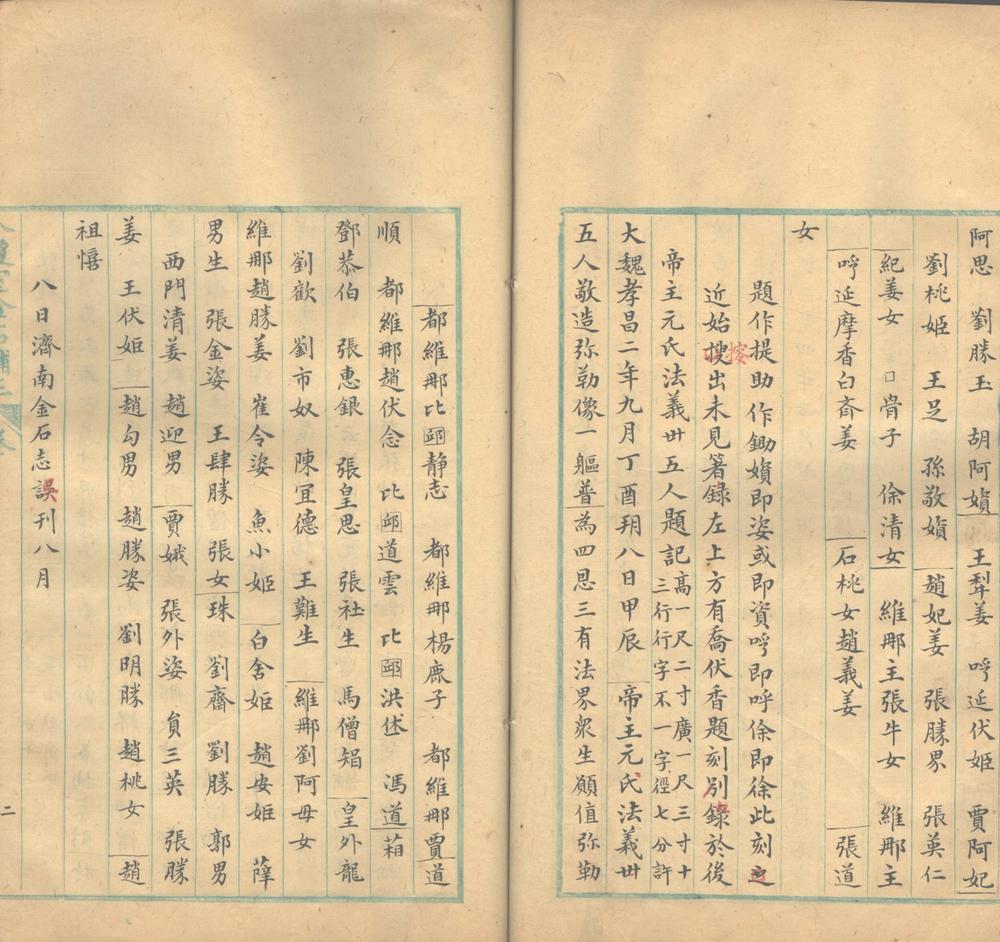 阿思 劉勝玉 胡阿嬪 王犁姜 呼延伏姬 賈阿妃
劉桃姬 王足 孫敬嬪 趙妃姜 張勝界 張英仁
紀姜女 □骨子 徐清女 維那主張牛女 維那主
呼延摩香白齋姜 石桃女趙義姜 張道
女
題作提助作鋤嬪即姿或即資呼即呼徐即徐此刻
近始搜按出未見箸錄左上方有喬伏香題刻別錄於後
帝主元氏法義卅五人題記高一尺二寸廣一尺三寸十三行行字不一字徑七分許
大魏孝昌二年九月丁酉玥八日甲辰 帝主元氏法義卅
五人敬造弥勒像一軀普為四恩三有法界眾生願值弥勒
都維那比邱静志 都維那楊廌子 都維那賈道
順 都維那趙伏念 比邱道雲 比邱洪述 馮道箱
鄧恭伯 張惠銀 張皇思 張社生 馬僧智 皇外龍
劉歡 劉市奴 陳冝德 王難生 維那劉阿母女
維那趙勝姜 崔令姿 魚小姬 白舍姬 趙安姬 薩
男生 張金姿 王肆勝 張女珠 劉齋 劉勝 郭男
西門清姜趙迎男 賈娥 張外姿 負三英 張勝
姜 王伏姬 趙勾男 趙勝姿 劉明勝 趙桃女 趙
祖憘
八日濟南金石志誤刊八月
二